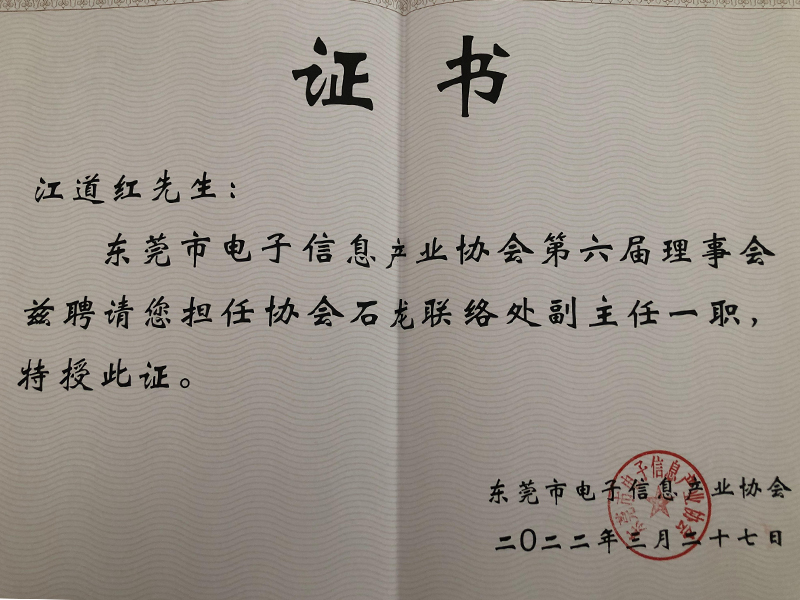 证书
江道红先生：
东莞市电子信息产业协会第六届理事会
兹聘请您担任协会石龙联络处副主任一职，
特授此证。
东莞市电子信息产业协会
二〇二二年三月二十七日
东莞市电子信息产业协会